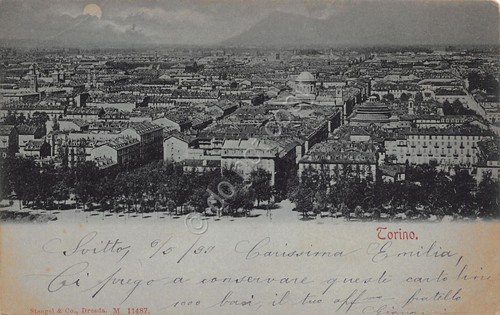 Torino.
Carissima Emilia,
Ci prego a conservare queste cartoline
1000 baci, il tuo aff fratello
Stengel & Co., Dresda. M 11487.